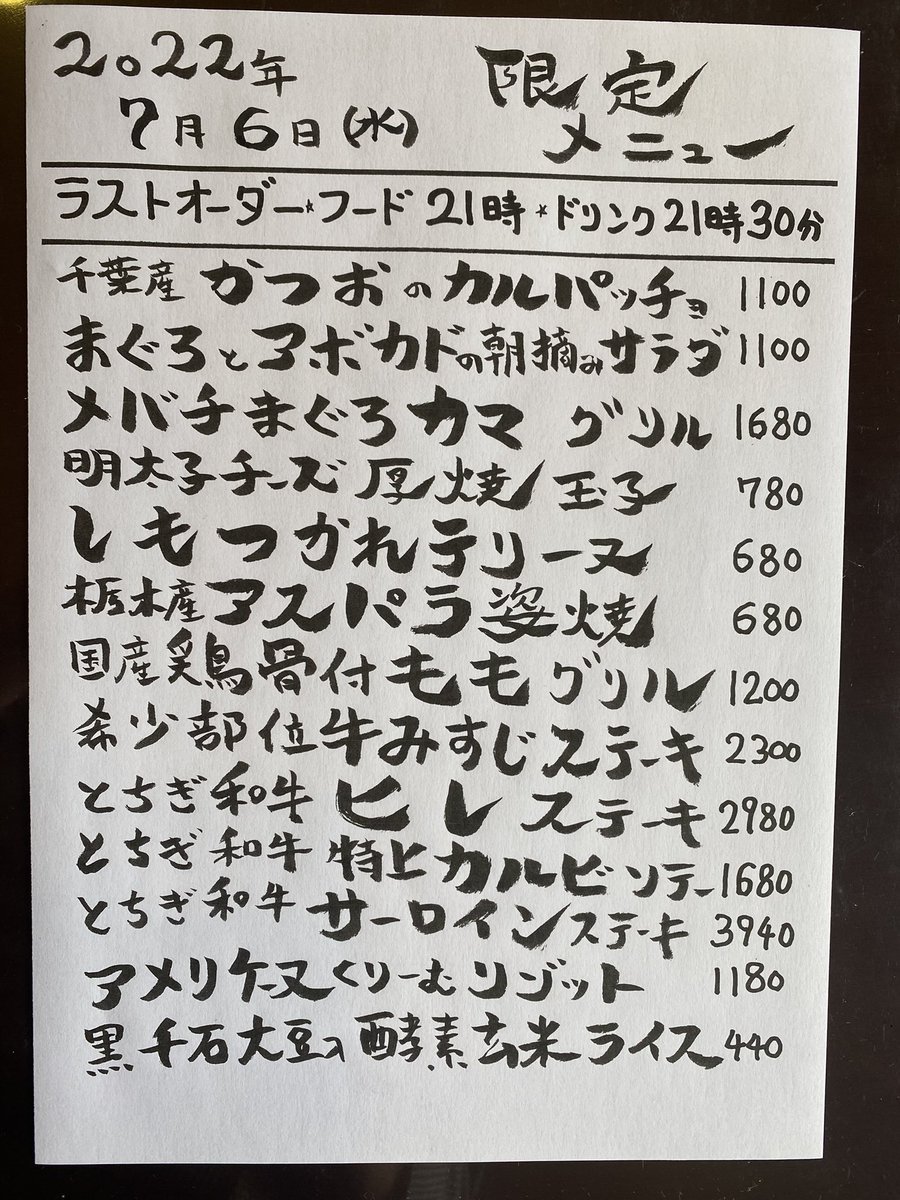 2022年
7月6日(水)
限定
メニュー
ラストオーダー★フード 21時★ドリンク21時30分
千葉産 かつおのカルパッチョ 1100
まぐろとアボカドの朝摘みサラダ 1100
メバチまぐろカマ グリル 1680
明太子チーズ 厚焼玉子 780
しもつかれテリーヌ 680
栃木産アスパラ姿焼 680
国産鶏骨付ももグリル 1200
希少部位牛みすじステーキ 2300
とちぎ和牛 ヒレステーキ 2980
とちぎ和牛 特上カルビソテー 1680
とちぎ和牛 サーロインステーキ 3940
アメリケーヌくりーむリゾット 1180
黒千石大豆入酵素玄米ライス 440